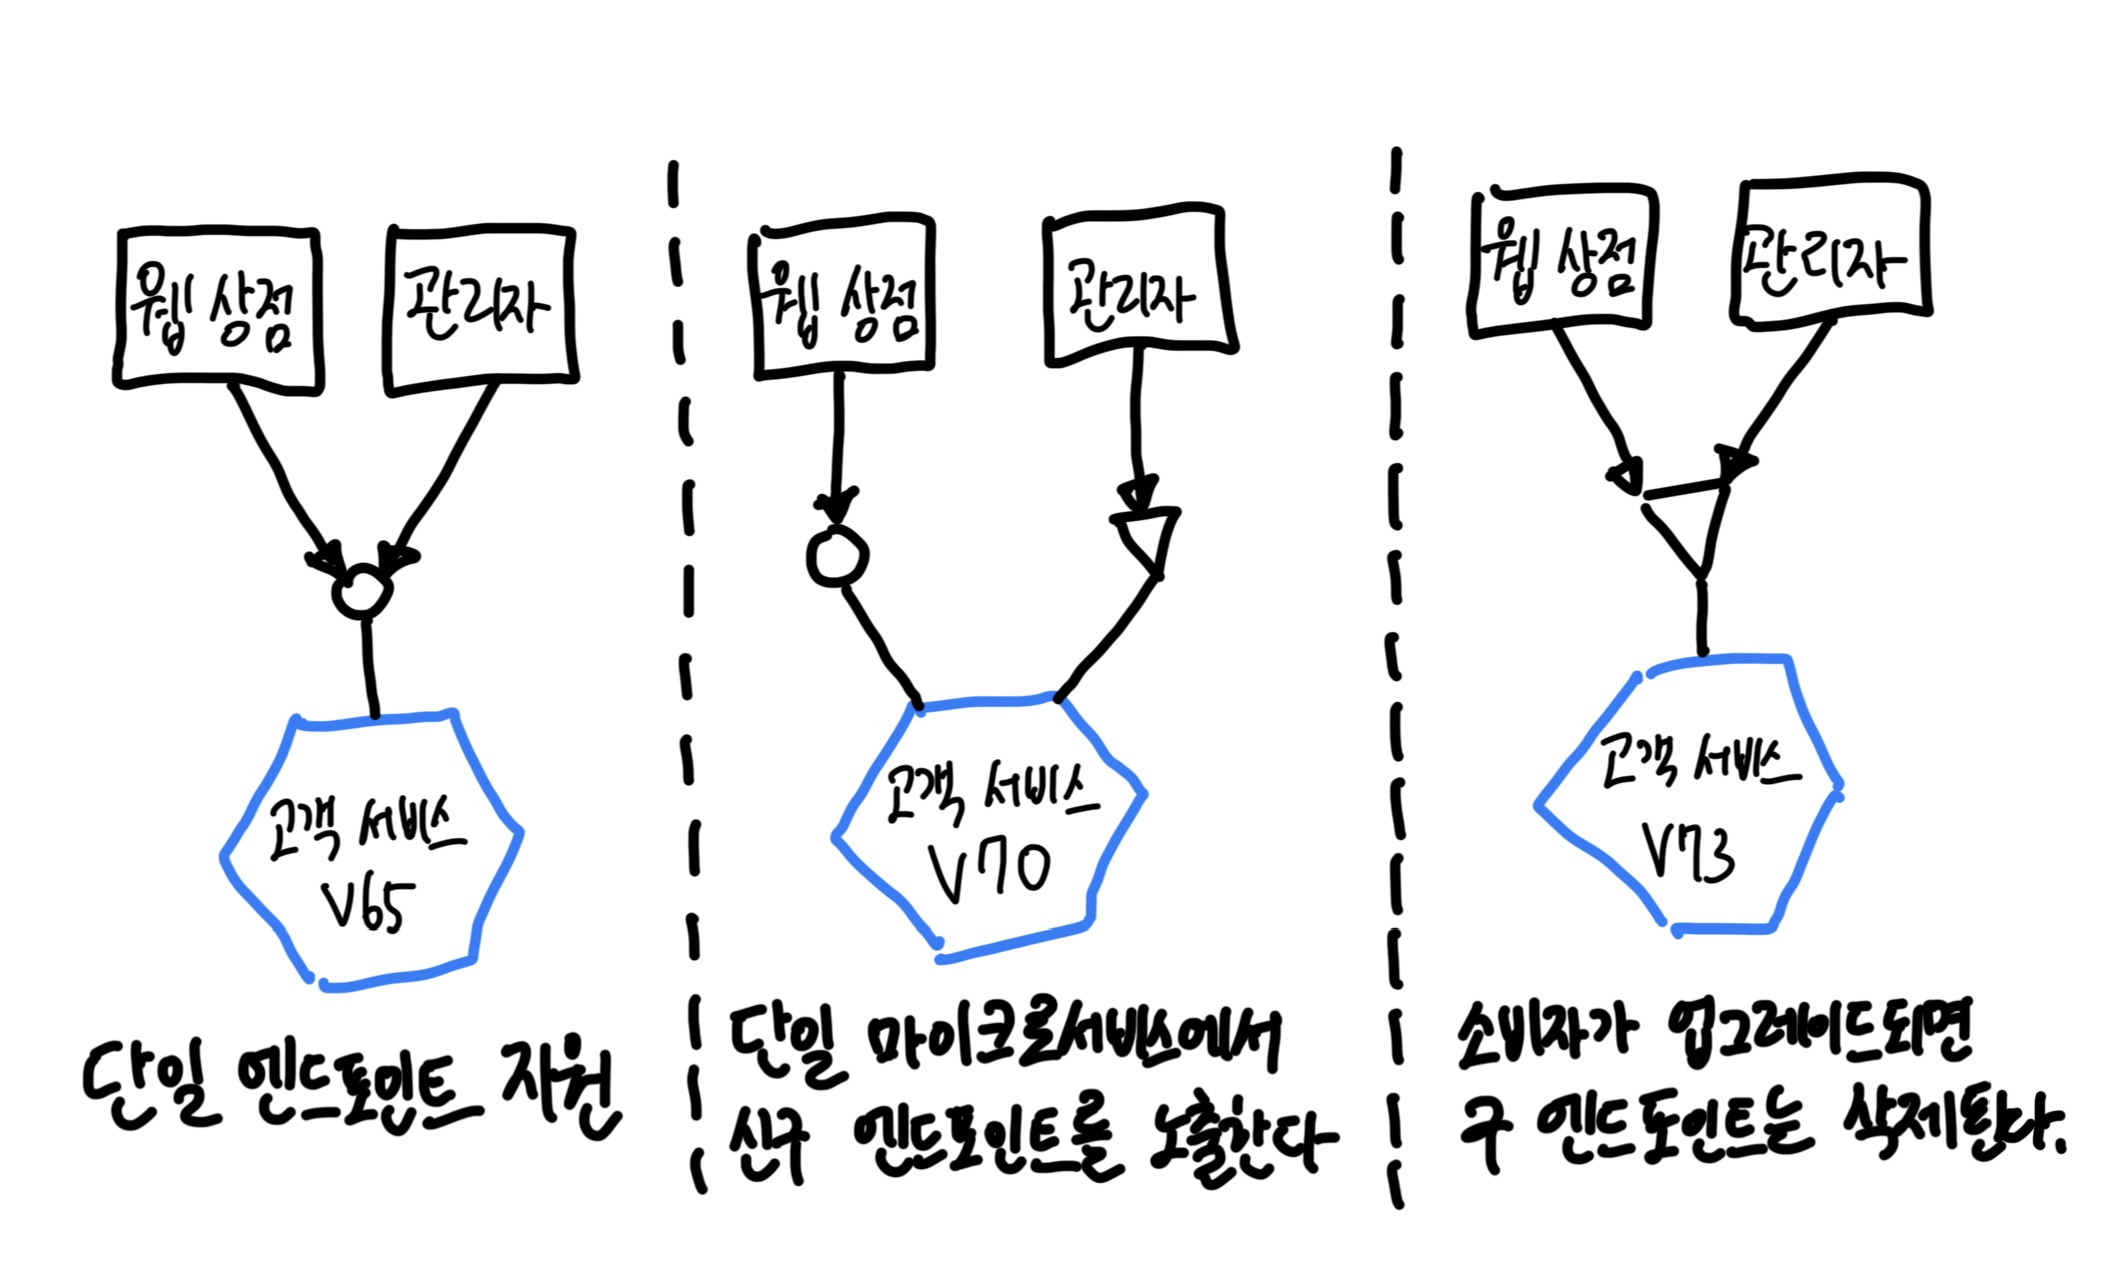 웹 상점
관리자
고객 서비스
V65
단일 엔드포인트 자원
웹 상점
관리자
고객 서비스
V70
단일 마이크로서비스에서
신구 엔드포인트를 노출한다
웹 상점
관리자
고객 서비스
V73
소비자가 업그레이드되면
구 엔드포인트는 삭제된다.